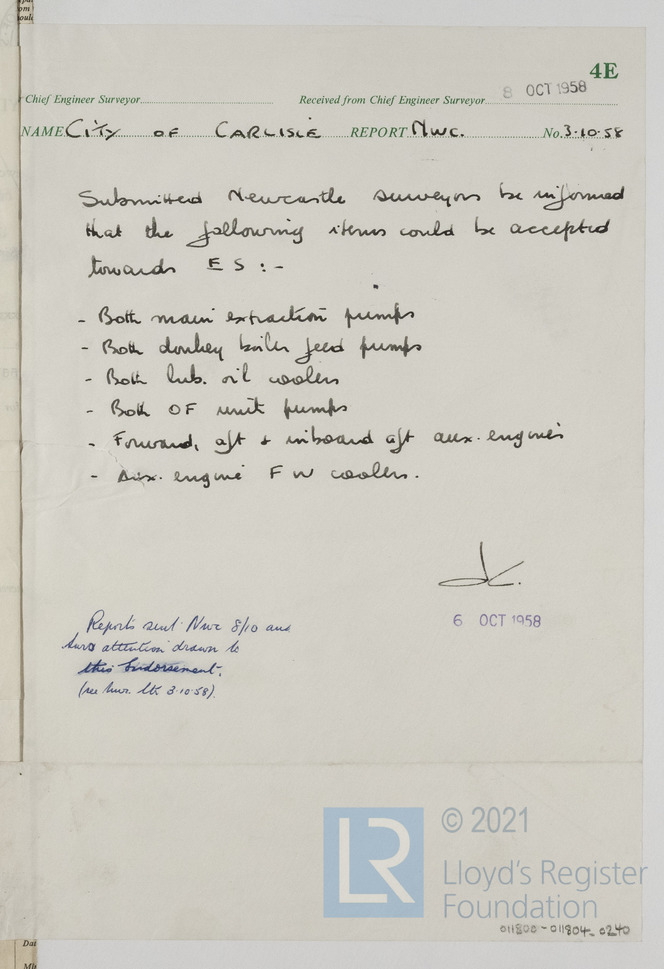 4E
Chief Engineer Surveyor
Received from Chief Engineer Surveyor 8 OCT 1958
NAME CITY OF CARLISLE REPORT Nwc. No. 3.10.58
Submitted Newcastle surveyors be informed
that the following items could be accepted
towards E S :-
- Both main extraction pumps
- Both donkey boiler feed pumps
- Both lub. oil coolers
- Both OF unit pumps
- Forward, aft & inboard aft aux. engines
- Aux. engine F W coolers.
6 OCT 1958
Reports sent Nwc 8/10 and
attention drawn to
this Endorsement.
(see Nwc. ltr 3.10.58).
LR
© 2021
Lloyd's Register
Foundation
011800-011804-0240
Dai